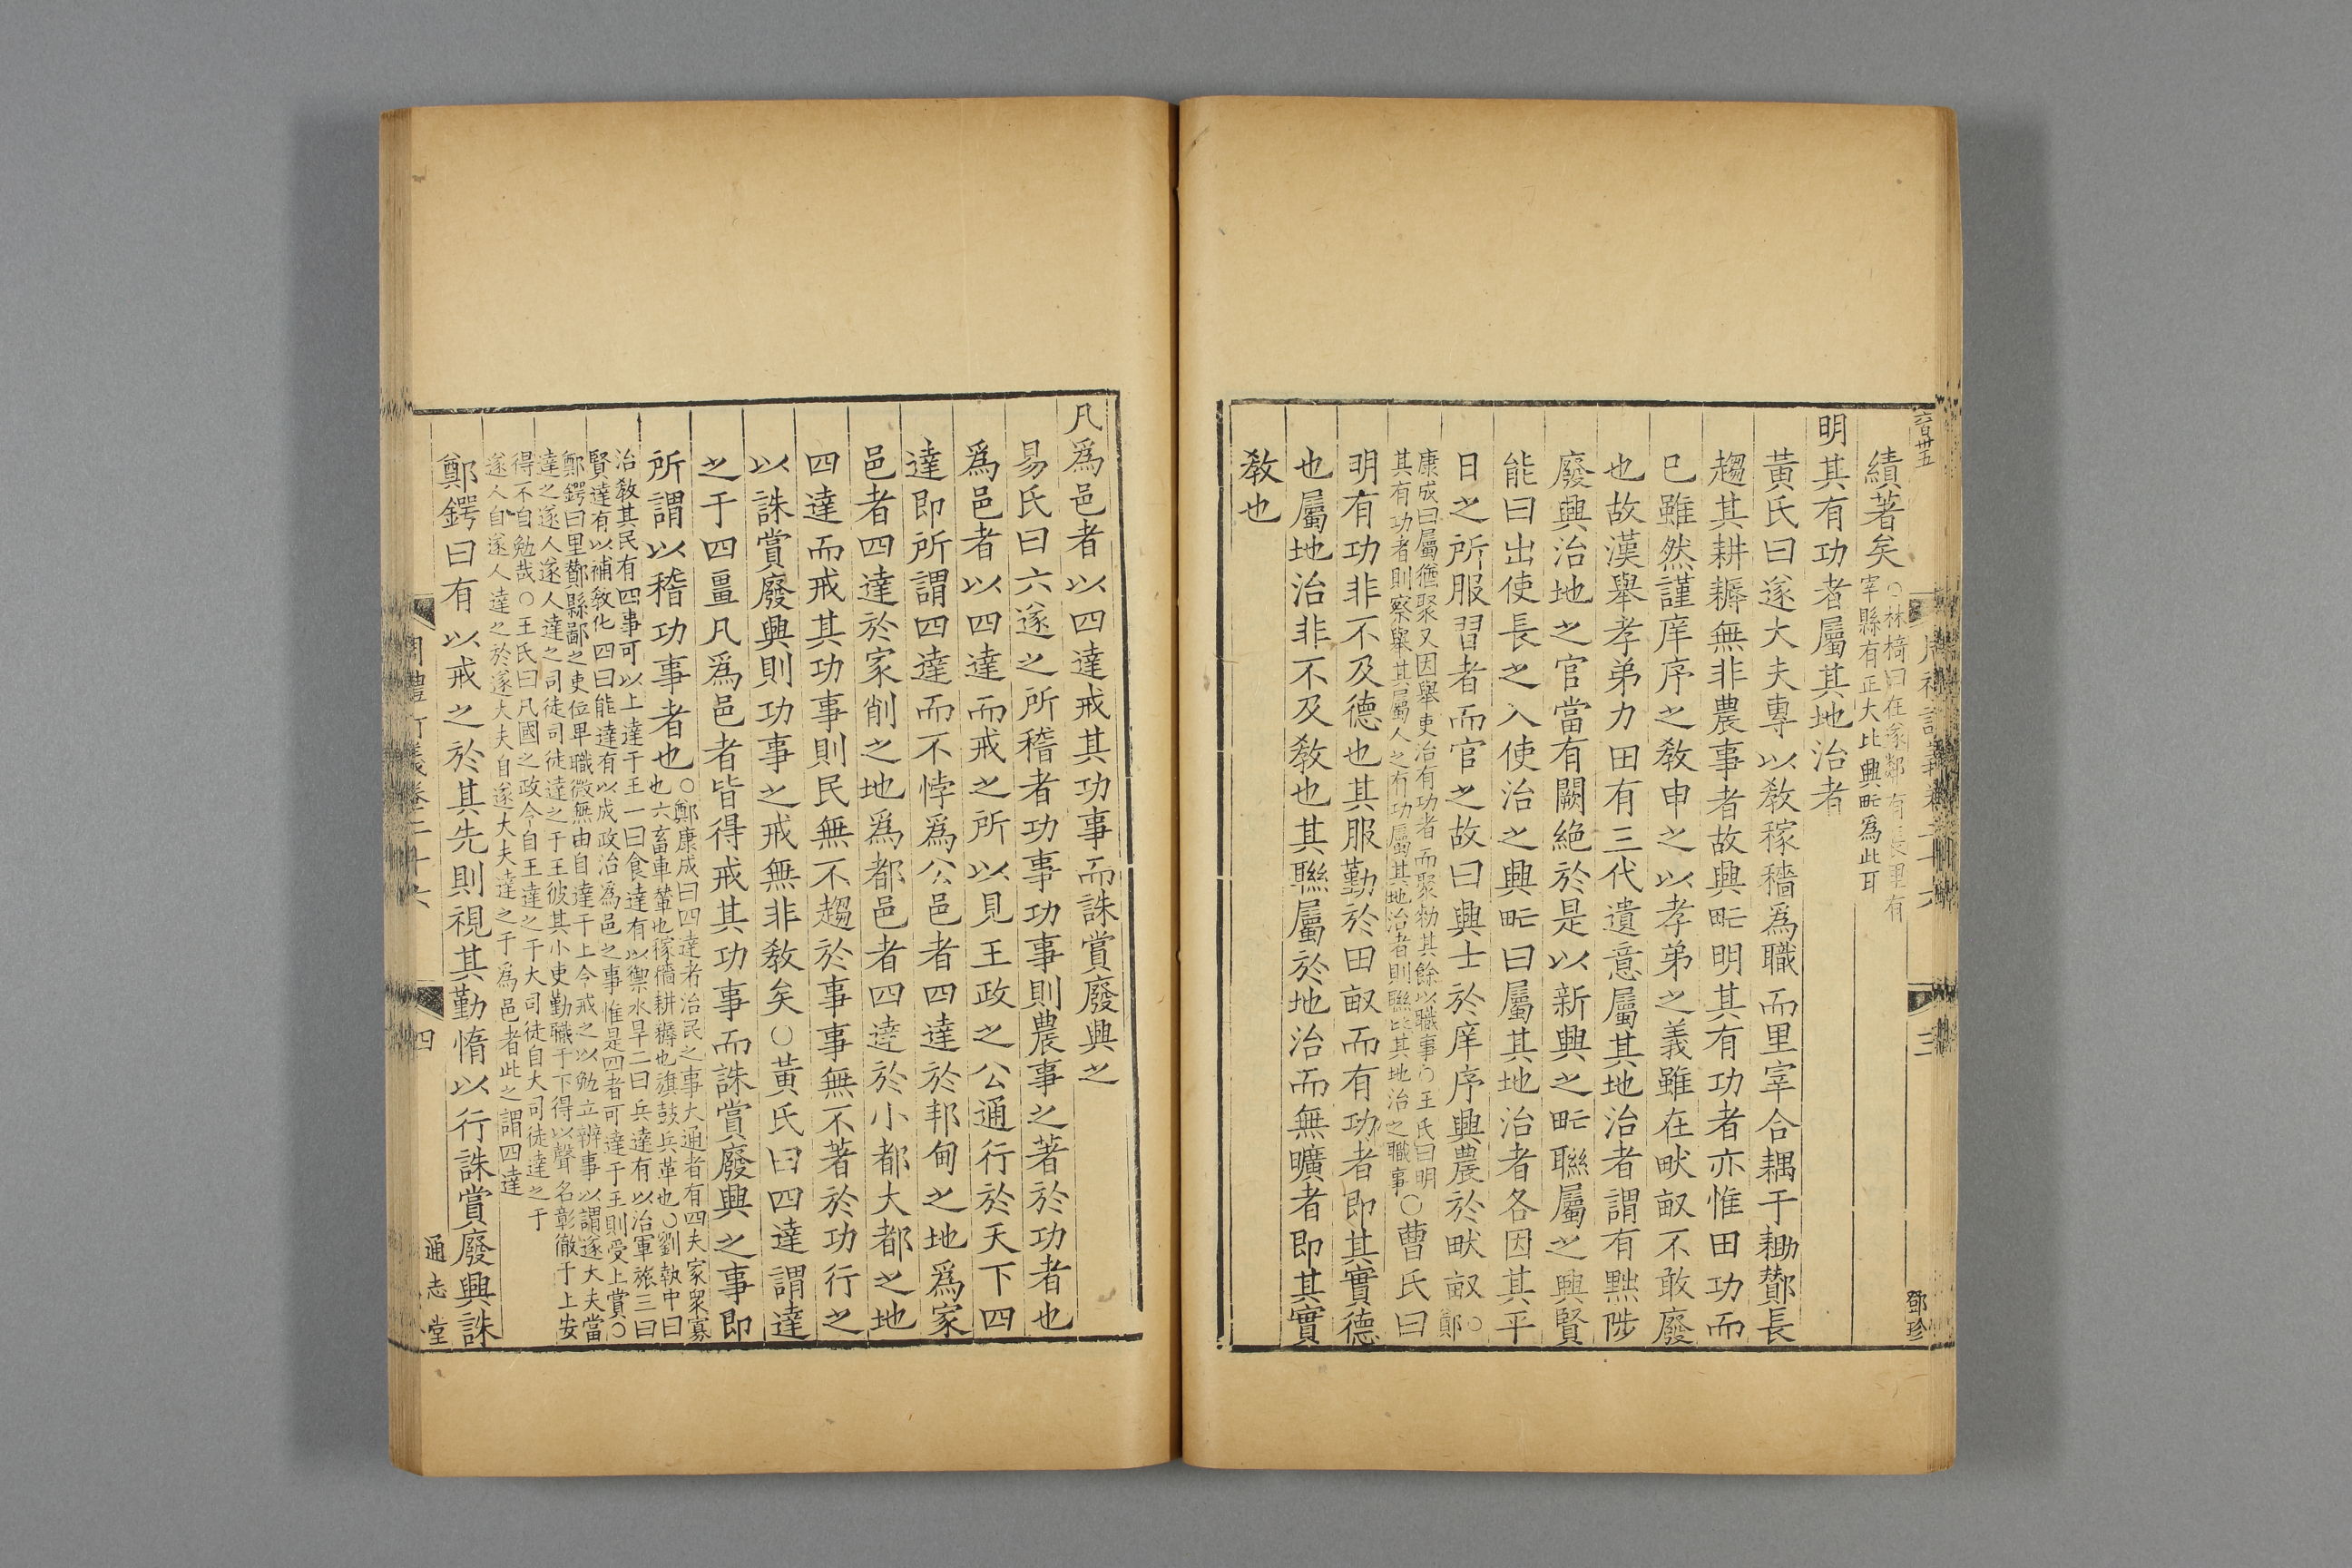 績著矣○林椅曰在遂鄰有長里有
宰縣有正大比興甿爲此耳
明其有功者屬其地治者
黃氏曰遂大夫專以敎稼穡爲職而里宰合耦于耡酇長
趨其耕耨無非農事者故興甿明其有功者亦惟田功而
已雖然謹庠序之敎申之以孝弟之義雖在畎畝不敢廢
也故漢舉孝弟力田有三代遺意屬其地治者謂有黜陟
廢興治地之官當有闕絕於是以新興之甿聯屬之興賢
能曰出使長之入使治之興甿曰屬其地治者各因其平
日之所服習者而官之故曰興士於庠序興農於畎畝○鄭
康成曰屬猶聚又因舉吏治有功者而聚勑其餘以職事○王氏曰明
其有功者則察舉其屬人之有功屬其地治者則聯比其地治之職事○曹氏曰
明有功非不及德也其服勤於田畝而有功者即其實德
也屬地治非不及敎也其聯屬於地治而無曠者即其實
敎也
三
鄧珍
凡爲邑者以四達戒其功事而誅賞廢興之
易氏曰六遂之所稽者功事功事則農事之著於功者也
爲邑者以四達而戒之所以見王政之公通行於天下四
達即所謂四達而不悖爲公邑者四達於邦甸之地爲家
邑者四達於家削之地爲都邑者四達於小都大都之地
四達而戒其功事則民無不趨於事事無不著於功行之
以誅賞廢興則功事之戒無非敎矣○黃氏曰四達謂達
之于四畺凡爲邑者皆得戒其功事而誅賞廢興之事即
所謂以稽功事者也○鄭康成曰四達者治民之事大通者有四夫家衆寡
也六畜車輦也稼穡耕耨也旗鼓兵革也○劉執中曰
治敎其民有四事可以上達于王一曰食達有以禦水旱二曰兵達有以治軍旅三曰
賢達有以補敎化四曰能達有以成政治爲邑之事惟是四者可達于王則受上賞○
鄭鍔曰里酇縣鄙之吏位卑職微無由自達于上今戒之以勉立辦事以謂遂大夫當
達之遂人遂人達之司徒司徒達之于王彼其小吏勤職于下得以聲名彰徹于上安
得不自勉哉○王氏曰凡國之政令自王達之于大司徒自大司徒達之于
遂人自遂人達之於遂大夫自遂大夫達之于爲邑者此之謂四達
鄭鍔曰有以戒之於其先則視其勤惰以行誅賞廢興誅
周禮訂義卷三十六
四
通志堂